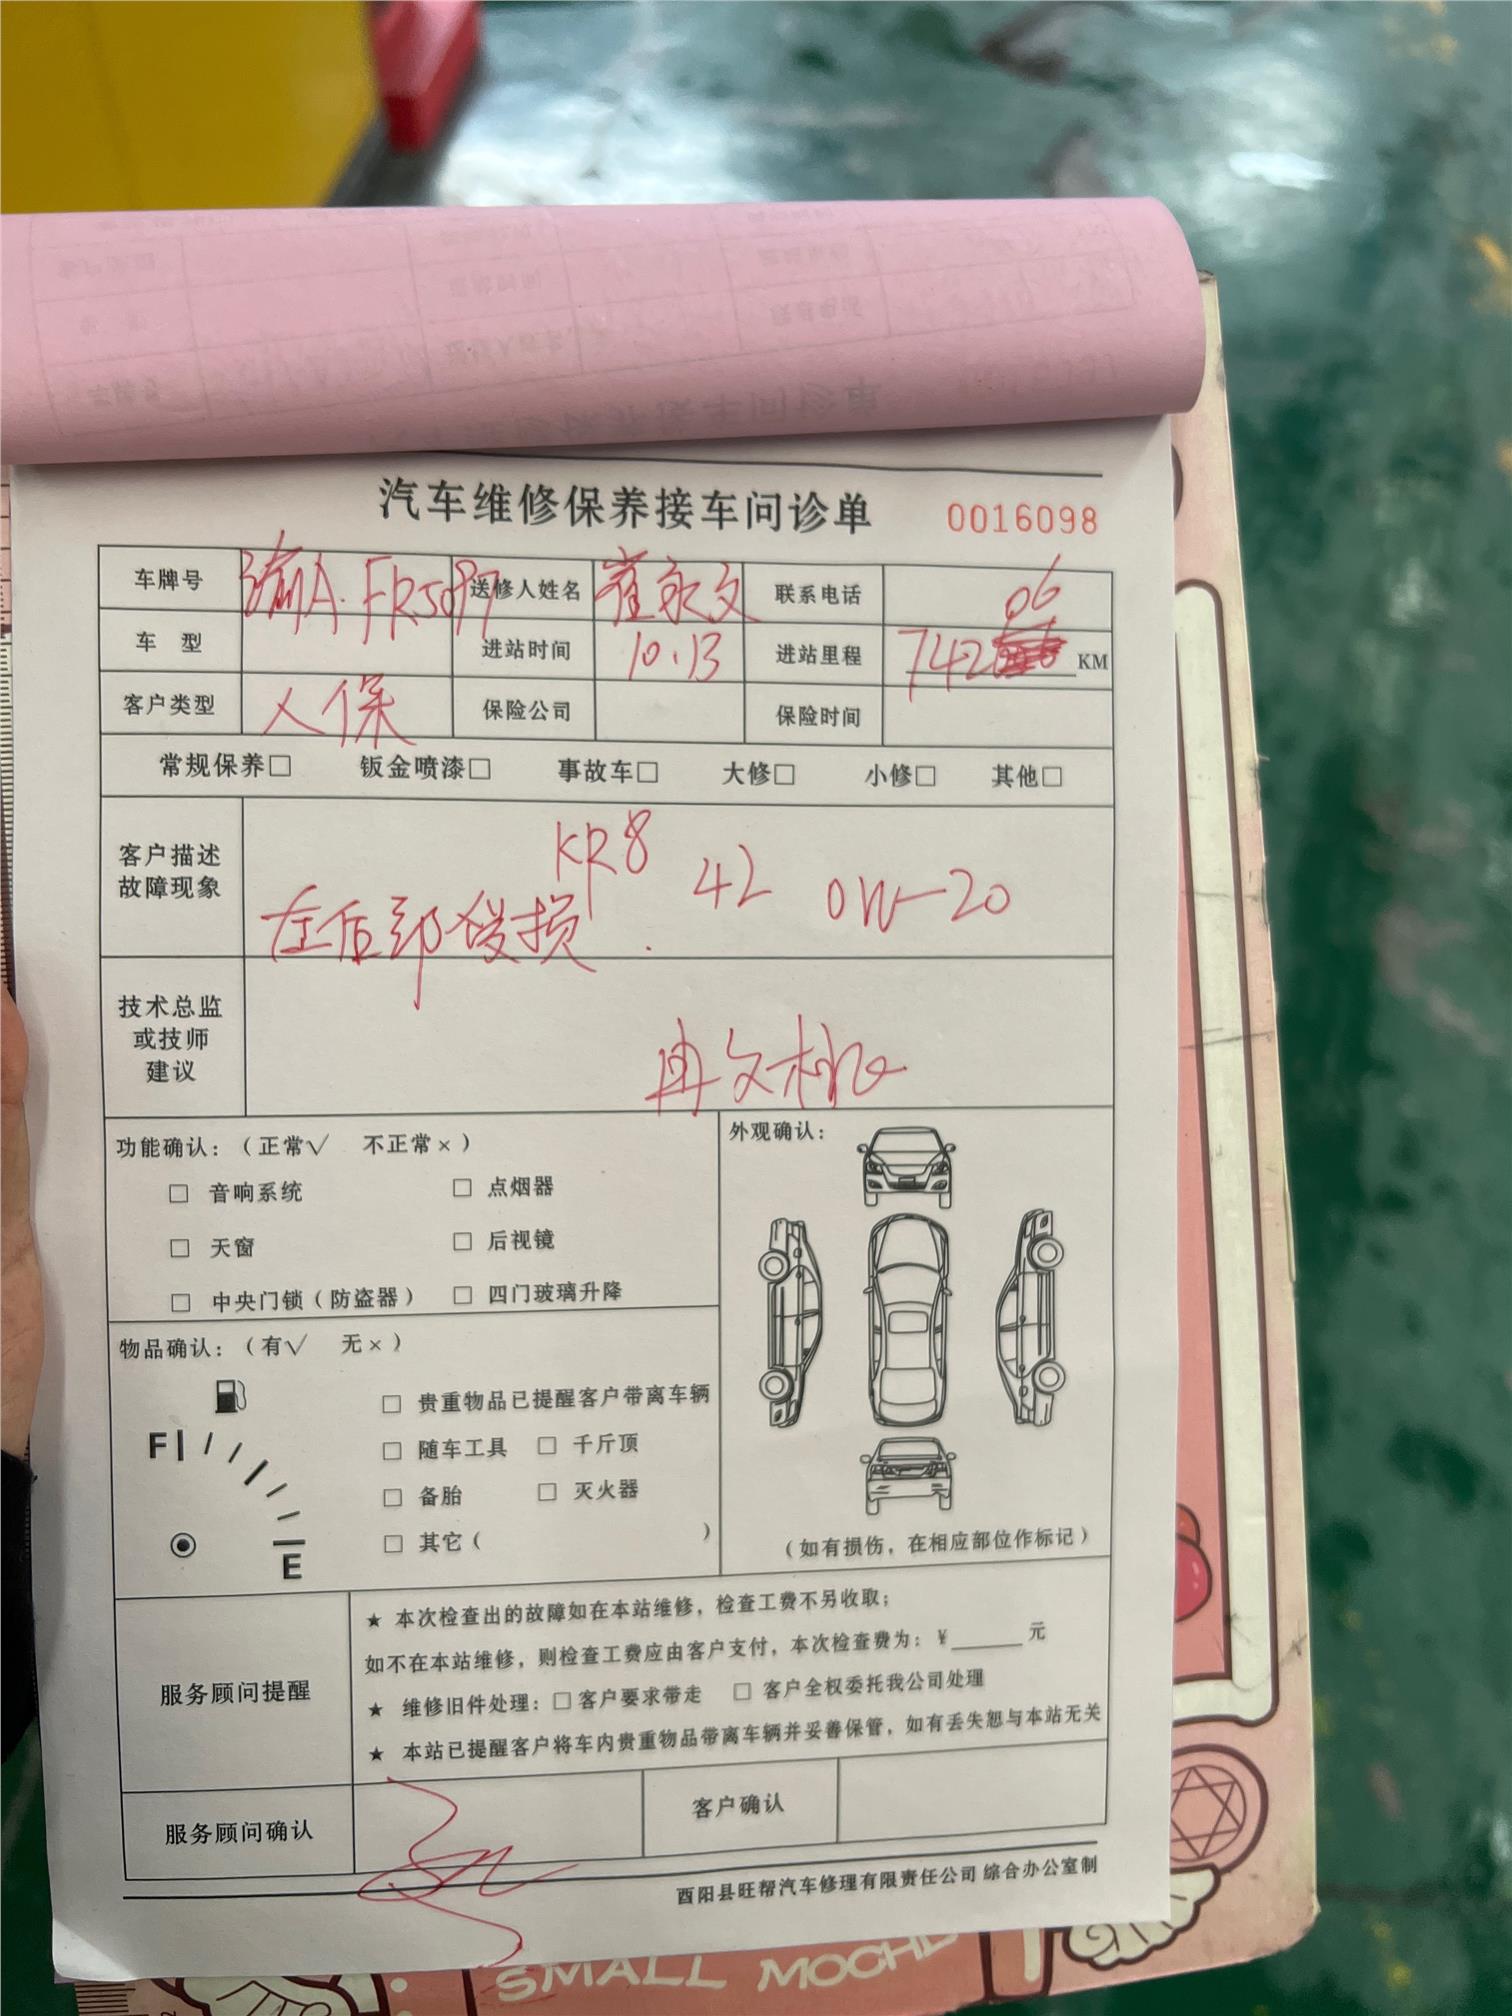 汽车维修保养接车问诊单 0016098
车牌号 渝A.FR5097 送修人姓名 崔永文 联系电话
车 型 进站时间 10.13 进站里程 74206 KM
客户类型 人保 保险公司 保险时间
常规保养□ 钣金喷漆□ 事故车□ 大修□ 小修□ 其他□
客户描述
故障现象
KR8 42 0W-20
左后部受损.
技术总监
或技师
建议
冉文
功能确认：（正常√ 不正常×）
□ 音响系统 □ 点烟器
□ 天窗 □ 后视镜
□ 中央门锁（防盗器） □ 四门玻璃升降
外观确认：
（如有损伤，在相应部位作标记）
物品确认：（有√ 无×）
F
E
□ 贵重物品已提醒客户带离车辆
□ 随车工具 □ 千斤顶
□ 备胎 □ 灭火器
□ 其它（ ）
服务顾问提醒
★ 本次检查出的故障如在本站维修，检查工费不另收取；
如不在本站维修，则检查工费应由客户支付，本次检查费为：¥______元
★ 维修旧件处理：□客户要求带走 □客户全权委托我公司处理
★ 本站已提醒客户将车内贵重物品带离车辆并妥善保管，如有丢失恕与本站无关
服务顾问确认 客户确认
酉阳县旺帮汽车修理有限责任公司 综合办公室制
SMALL